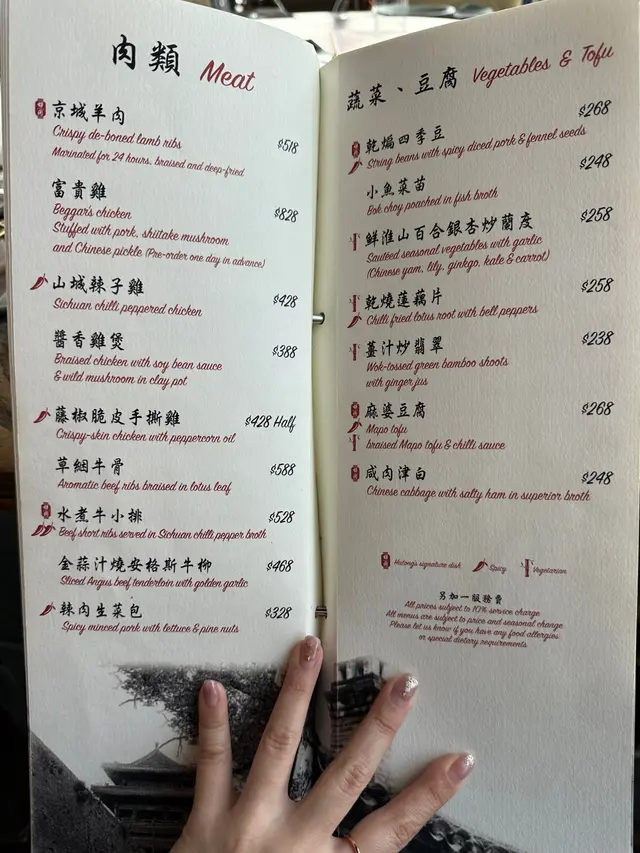 肉類 Meat
京城羊肉
Crispy de-boned lamb ribs $518
Marinated for 24 hours, braised and deep-fried
富貴雞
Beggar's chicken $828
Stuffed with pork, shiitake mushroom
and Chinese pickle (Pre-order one day in advance)
山城辣子雞
Sichuan chilli peppered chicken $428
醬香雞煲
Braised chicken with soy bean sauce $388
& wild mushroom in clay pot
藤椒脆皮手撕雞 $428 Half
Crispy-skin chicken with peppercorn oil
草綑牛骨 $588
Aromatic beef ribs braised in lotus leaf
水煮牛小排 $528
Beef short ribs served in Sichuan chilli pepper broth
金蒜汁燒安格斯牛柳 $468
Sliced Angus beef tenderloin with golden garlic
辣肉生菜包 $328
Spicy minced pork with lettuce & pine nuts
蔬菜、豆腐 Vegetables & Tofu
乾煸四季豆 $268
String beans with spicy diced pork & fennel seeds
小魚菜苗 $248
Bok choy poached in fish broth
鮮淮山百合銀杏炒蘭度 $258
Sautéed seasonal vegetables with garlic
(Chinese yam, lily, ginkgo, kale & carrot)
乾燒蓮藕片 $258
Chilli fried lotus root with bell peppers
薑汁炒翡翠 $238
Wok-tossed green bamboo shoots
with ginger jus
麻婆豆腐 $268
Mapo tofu
braised Mapo tofu & chilli sauce
咸肉津白 $248
Chinese cabbage with salty ham in superior broth
Hutong's signature dish Spicy Vegetarian
另加一服務費
All prices subject to 10% service charge
All menus are subject to price and seasonal change
Please let us know if you have any food allergies
or special dietary requirements